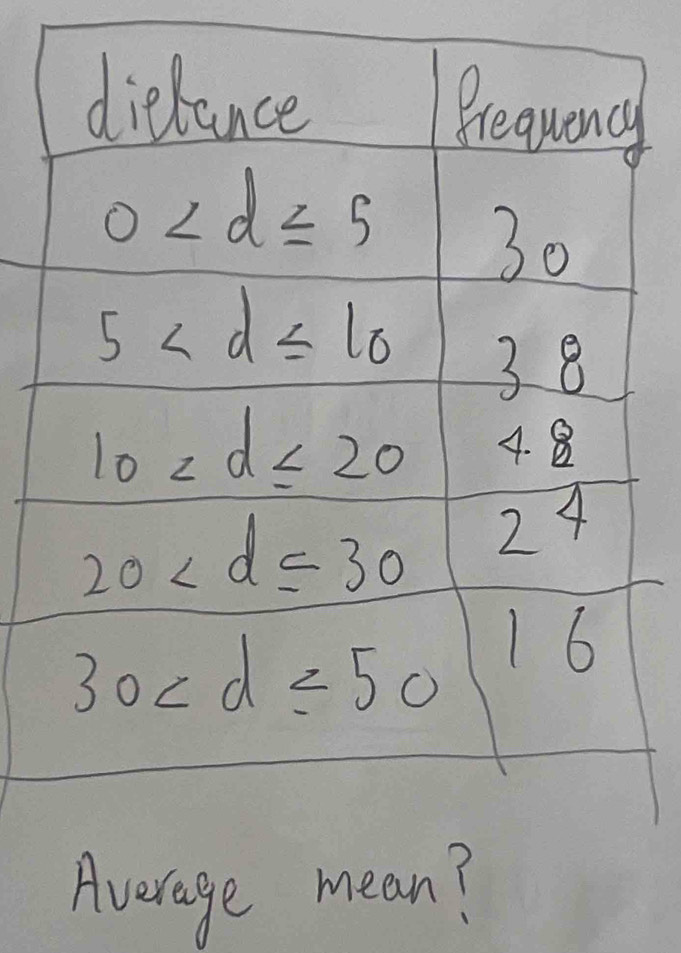 distance frequency
0 < d ≤ 5 30
5 < d ≤ 10 38
10 < d ≤ 20 48
20 < d ≤ 30 24
30 < d ≤ 50 16
Average mean?